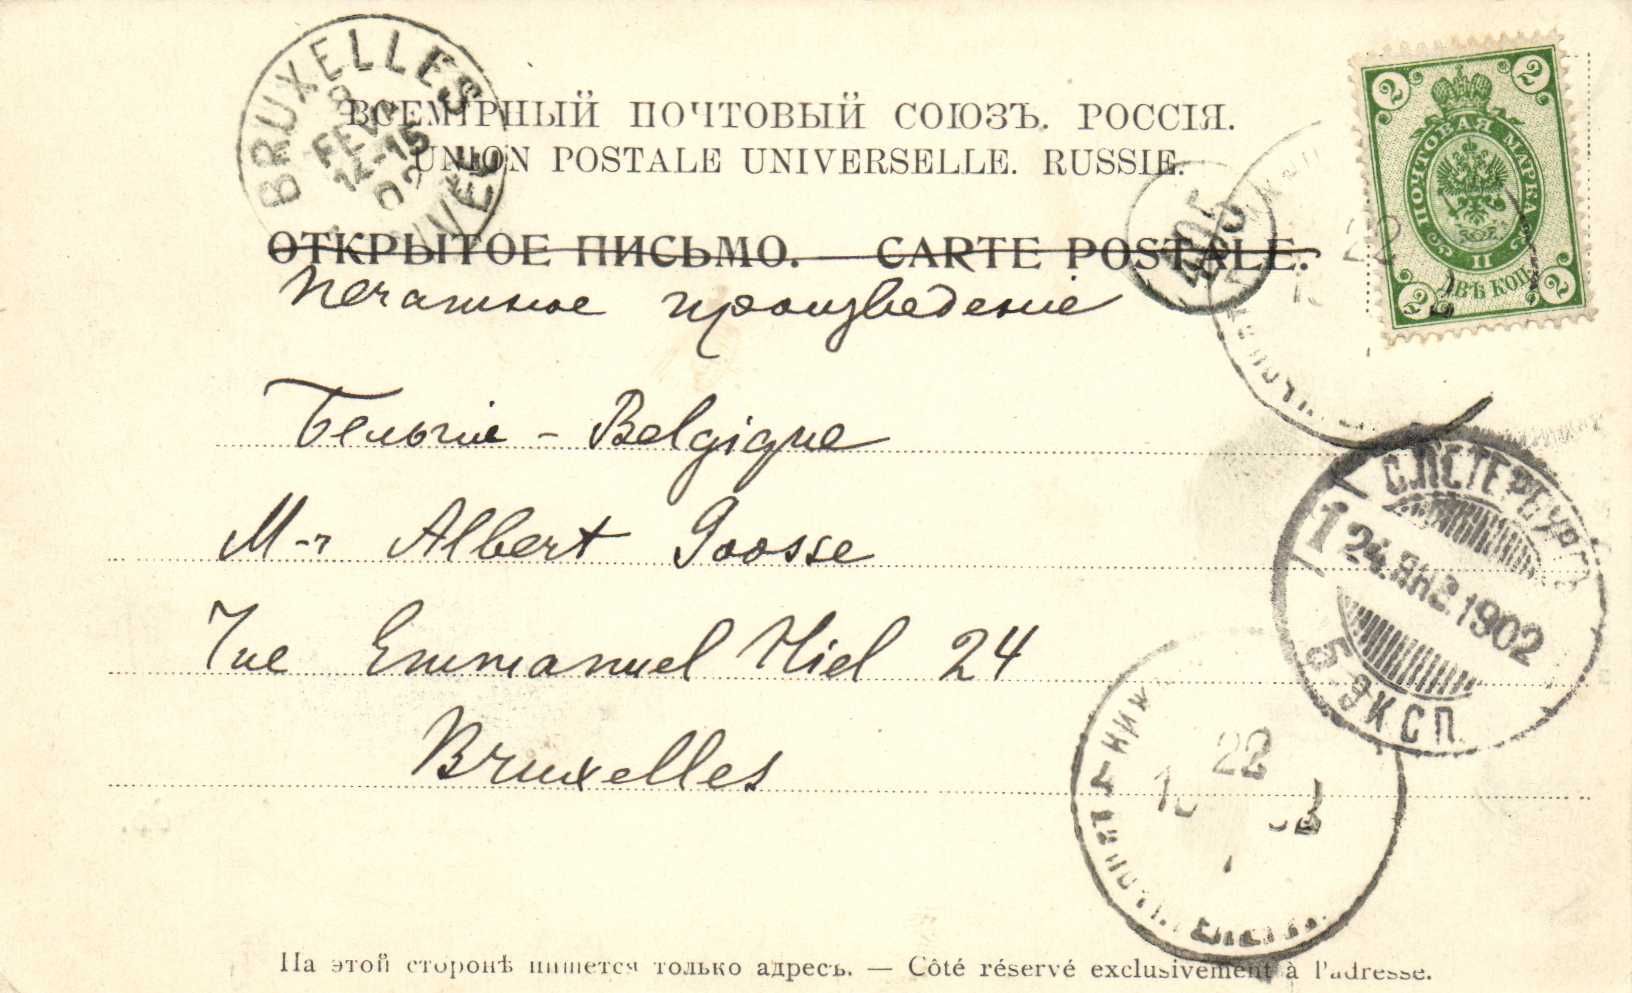 ВСЕМІРНЫЙ ПОЧТОВЫЙ СОЮЗЪ. РОССІЯ.
UNION POSTALE UNIVERSELLE. RUSSIE.
ОТКРЫТОЕ ПИСЬМО. — CARTE POSTALE.
Печатное произведеніе
Бельгія - Belgique
M-r Albert Goosse
rue Emmanuel Hiel 24
Bruxelles
На этой сторонѣ пишется только адресъ. — Côté réservé exclusivement à l'adresse.
BRUXELLES
8
FEVR
14-15
02
405
2 2
ПОЧТОВАЯ МАРКА
ДВѢ КОП.
2 2
22
С.ПЕТЕРБУРГЪ
1
24.ЯНВ.1902
5-ЭКСП.
22